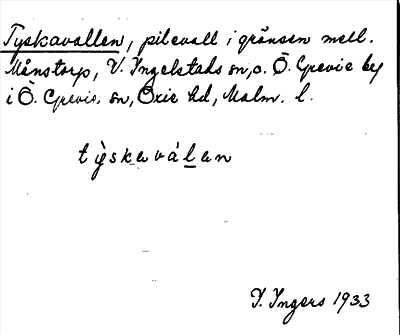 Tyskavallen, pilevall i gränsen mell.
Månstorp, V. Ingelstads sn, o. Ö. Grevie by
i Ö. Grevie sn, Oxie hd, Malm. l.
tỳskavàl̲an
I. Ingers 1933